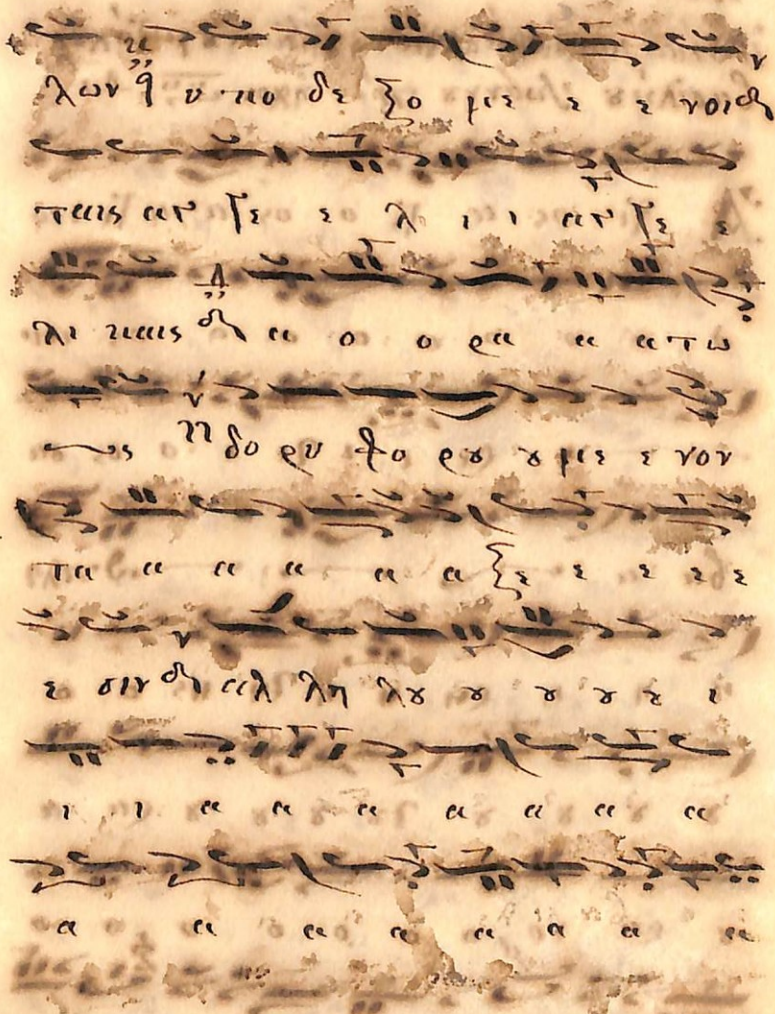 λων υ πο δε ξο με ε ε νοι
ταις αγ γε ε λ ι ι αγ γε ε
λι καις α ο ο ρα α α τω
ως δο ρυ φο ρȣ ȣ με ε νον
τα α α α α α ξε ε ε ε ε
ε σιν αλ λη λȣ ȣ ȣ ȣ ȣ ι
ι ι α α α α α α α
α α α α α α α α